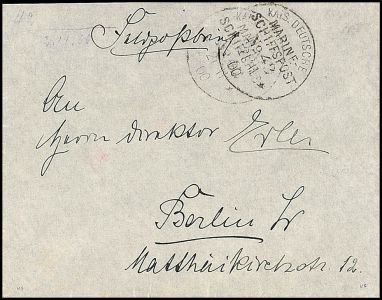 Feldpostbrief
KAIS. DEUTSCHE
MARINE-
SCHIFFSPOST
An
Herrn Direktor Erler
Berlin W
Matthäikirchstr. 12.